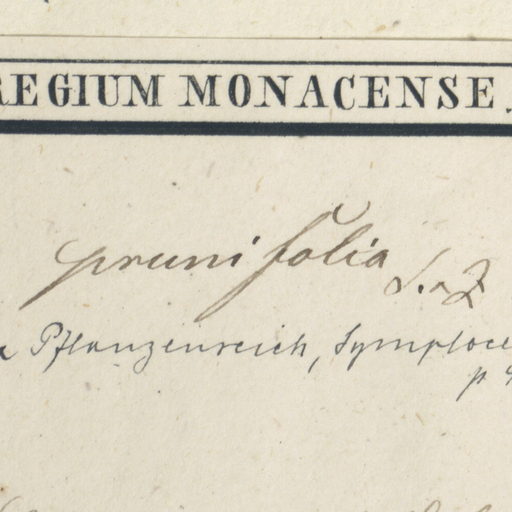 REGIUM MONACENSE.
prunifolia S. et Z.
Pflanzenreich, Symploce
p